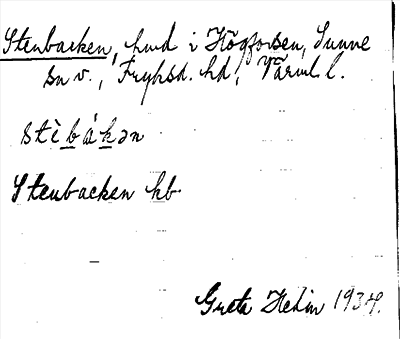 Stenbacken, hmd i Högforsen, Sunne
sn v., Fryksd. hd, Värml. l.
stèbákən
Stenbacken hb
Greta Hedin 1934.